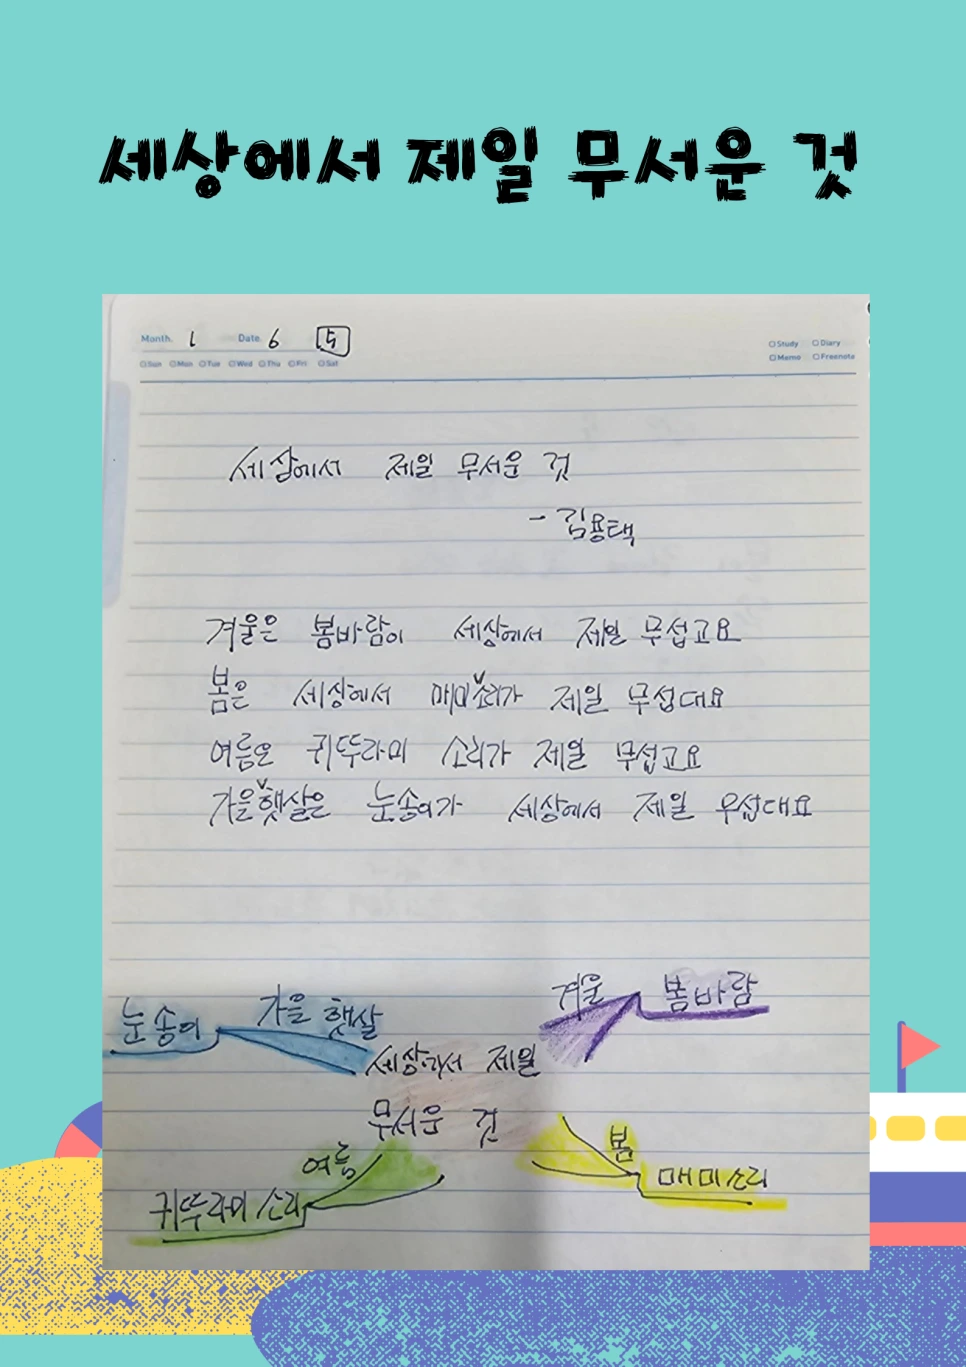 세상에서 제일 무서운 것
Month. 1 Date. 6 5
Sun Mon Tue Wed Thu Fri Sat
Study Diary
Memo Freenote
세상에서 제일 무서운 것
- 김용택
겨울은 봄바람이 세상에서 제일 무섭고요
봄은 세상에서 매미∨소리가 제일 무섭대요
여름은 귀뚜라미 소리가 제일 무섭고요
가을∨햇살은 눈송이가 세상에서 제일 무섭대요
겨울 봄바람
눈송이 가을 햇살
세상에서 제일
무서운 것
봄
매미소리
여름
귀뚜라미 소리